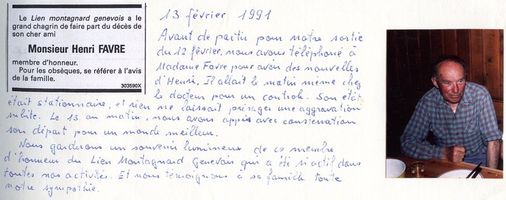 Le Lien montagnard genevois a le
grand chagrin de faire part du décès de
son cher ami
Monsieur Henri FAVRE
membre d'honneur.
Pour les obsèques, se référer à l'avis
de la famille.
303590X
13 février 1991
Avant de partir pour notre sortie
du 12 février, nous avons téléphoné à
Madame Favre pour avoir des nouvelles
d'Henri. Il allait le matin même chez
le docteur pour un control. Son état
était stationnaire, et rien ne laissait présager une aggravation
subite. Le 13 au matin, nous avons appris avec consternation
son départ pour un monde meilleur.
Nous garderons un souvenir lumineux de ce membre
d'honneur du Lien Montagnard Genevois qui a été si actif dans
toutes nos activités. Et nous témoignons à sa famille toute
notre sympathie.